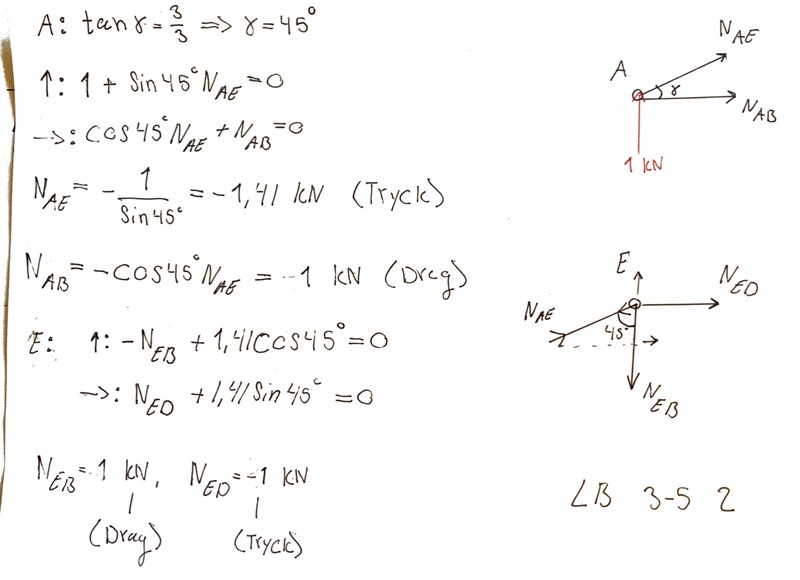 A: tan γ = 3/3 => γ = 45°
↑: 1 + Sin 45° N_AE = 0
->: cos 45° N_AE + N_AB = 0
N_AE = - 1/Sin 45° = -1,41 kN (Tryck)
N_AB = -cos 45° N_AE = 1 kN (Drag)
E: ↑: -N_EB + 1,41 cos 45° = 0
->: N_ED + 1,41 Sin 45° = 0
N_EB = 1 kN, N_ED = -1 kN
(Drag) (Tryck)
N_AE
A
γ
N_AB
1 kN
E
N_ED
N_AE
45°
N_EB
LB 3-5 2